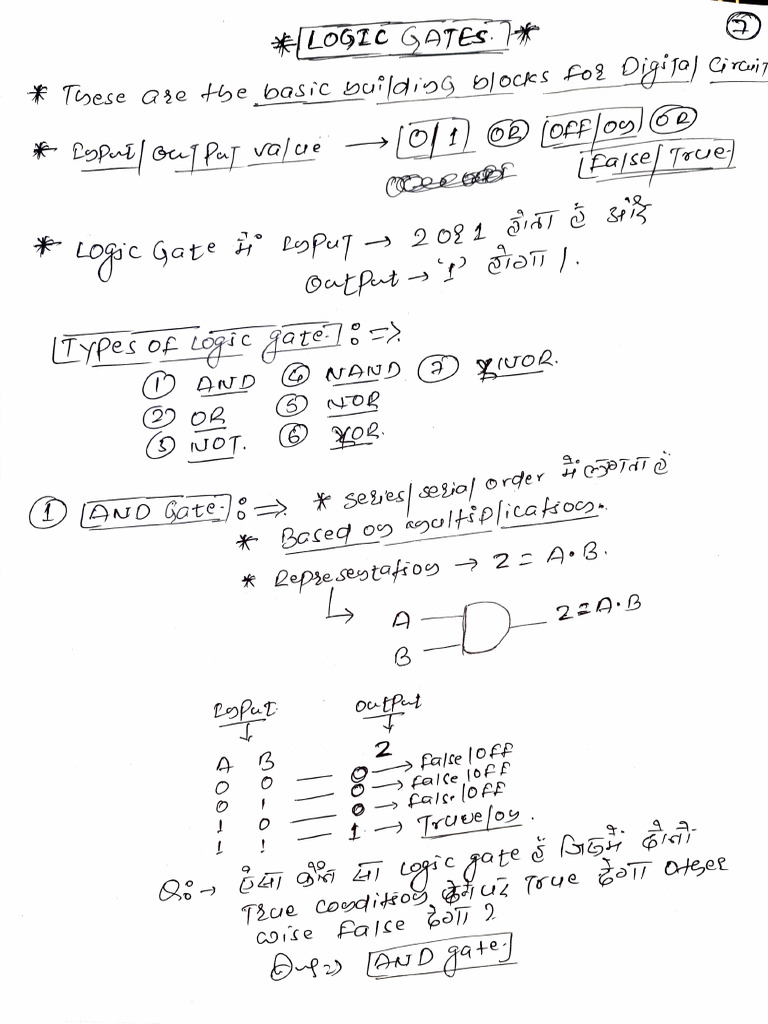 7
* LOGIC GATES. *
* These are the basic building blocks for Digital Circuit
* Input/output value → 0/1 OR OFF/ON OR
False/True
* Logic Gate में Input → 2 or 1 होता है और
Output → '1' होगा।
Types of Logic gate. :⇒
① AND ④ NAND ⑦ XNOR.
② OR ⑤ NOR
③ NOT. ⑥ XOR.
① AND Gate. :⇒ * series/serial order में लगता है
* Based on multiplication.
* Representation → Z = A·B.
A
B
Z=A·B
Input Output
A B Z
0 0 — 0 → false/OFF
0 1 — 0 → false/OFF
1 0 — 0 → false/OFF
1 1 — 1 → True/on.
Q:→ ऐसा कौन सा logic gate है जिसमें दोनो
True condition होने पर True देगा other
wise false देगा ?
Ans⇒ AND gate.